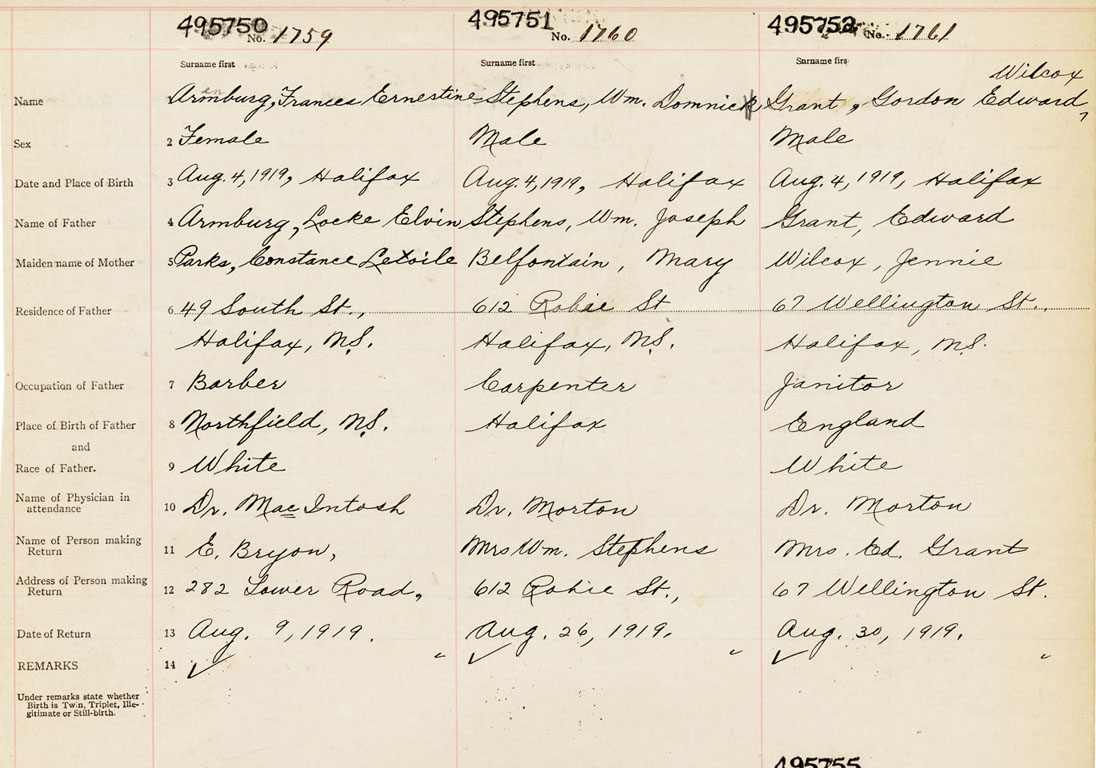 495750 495751 495752
No. 1759 No. 1760 No. 1761
Surname first Surname first Surname firs
Wilcox
Name Armburg, Frances Ernestine Stephens, Wm. Domnick Grant, Gordon Edward,
en
Sex 2 Female Male Male
Date and Place of Birth 3 Aug. 4, 1919, Halifax Aug. 4, 1919, Halifax Aug. 4, 1919, Halifax
Name of Father 4 Armburg, Locke Elvin Stephens, Wm. Joseph Grant, Edward
Maiden name of Mother 5 Parks, Constance Letoile Belfontain, Mary Wilcox, Jennie
Residence of Father 6 49 South St., 612 Robie St 67 Wellington St..
Halifax, N.S. Halifax, N.S. Halifax, N.S.
Occupation of Father 7 Barber Carpenter Janitor
Place of Birth of Father 8 Northfield, N.S. Halifax England
and
Race of Father. 9 White White
Name of Physician in
attendance 10 Dr. MacIntosh Dr. Morton Dr. Morton
Name of Person making
Return 11 E. Bryon, Mrs Wm. Stephens Mrs. Ed. Grant
Address of Person making
Return 12 282 Tower Road, 612 Robie St., 67 Wellington St.
Date of Return 13 Aug. 9, 1919. Aug. 26, 1919. Aug. 30, 1919.
REMARKS 14 ✓ " ✓ " ✓ "
Under remarks state whether
Birth is Twin, Triplet, Ille-
gitimate or Still-birth.
495755